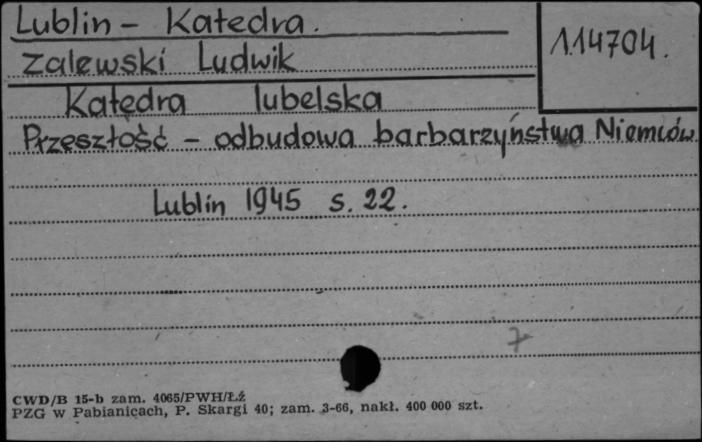 Lublin - Katedra.
114704.
Zalewski Ludwik
Katedra lubelska
Przeszłość - odbudowa barbarzyństwa Niemców
Lublin 1945 s. 22.
7
CWD/B 15-b zam. 4065/PWH/Łź
PZG w Pabianicach, P. Skargi 40; zam. 3-66, nakł. 400 000 szt.